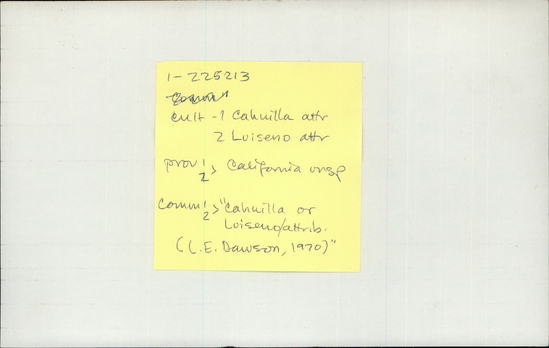 1-225213
cult -1 Cahuilla attr
2 Luiseno attr
prov 1/2 > California unsp
comm 1/2 > "Cahuilla or
Luiseno/attrib.
(L.E. Dawson, 1970)"